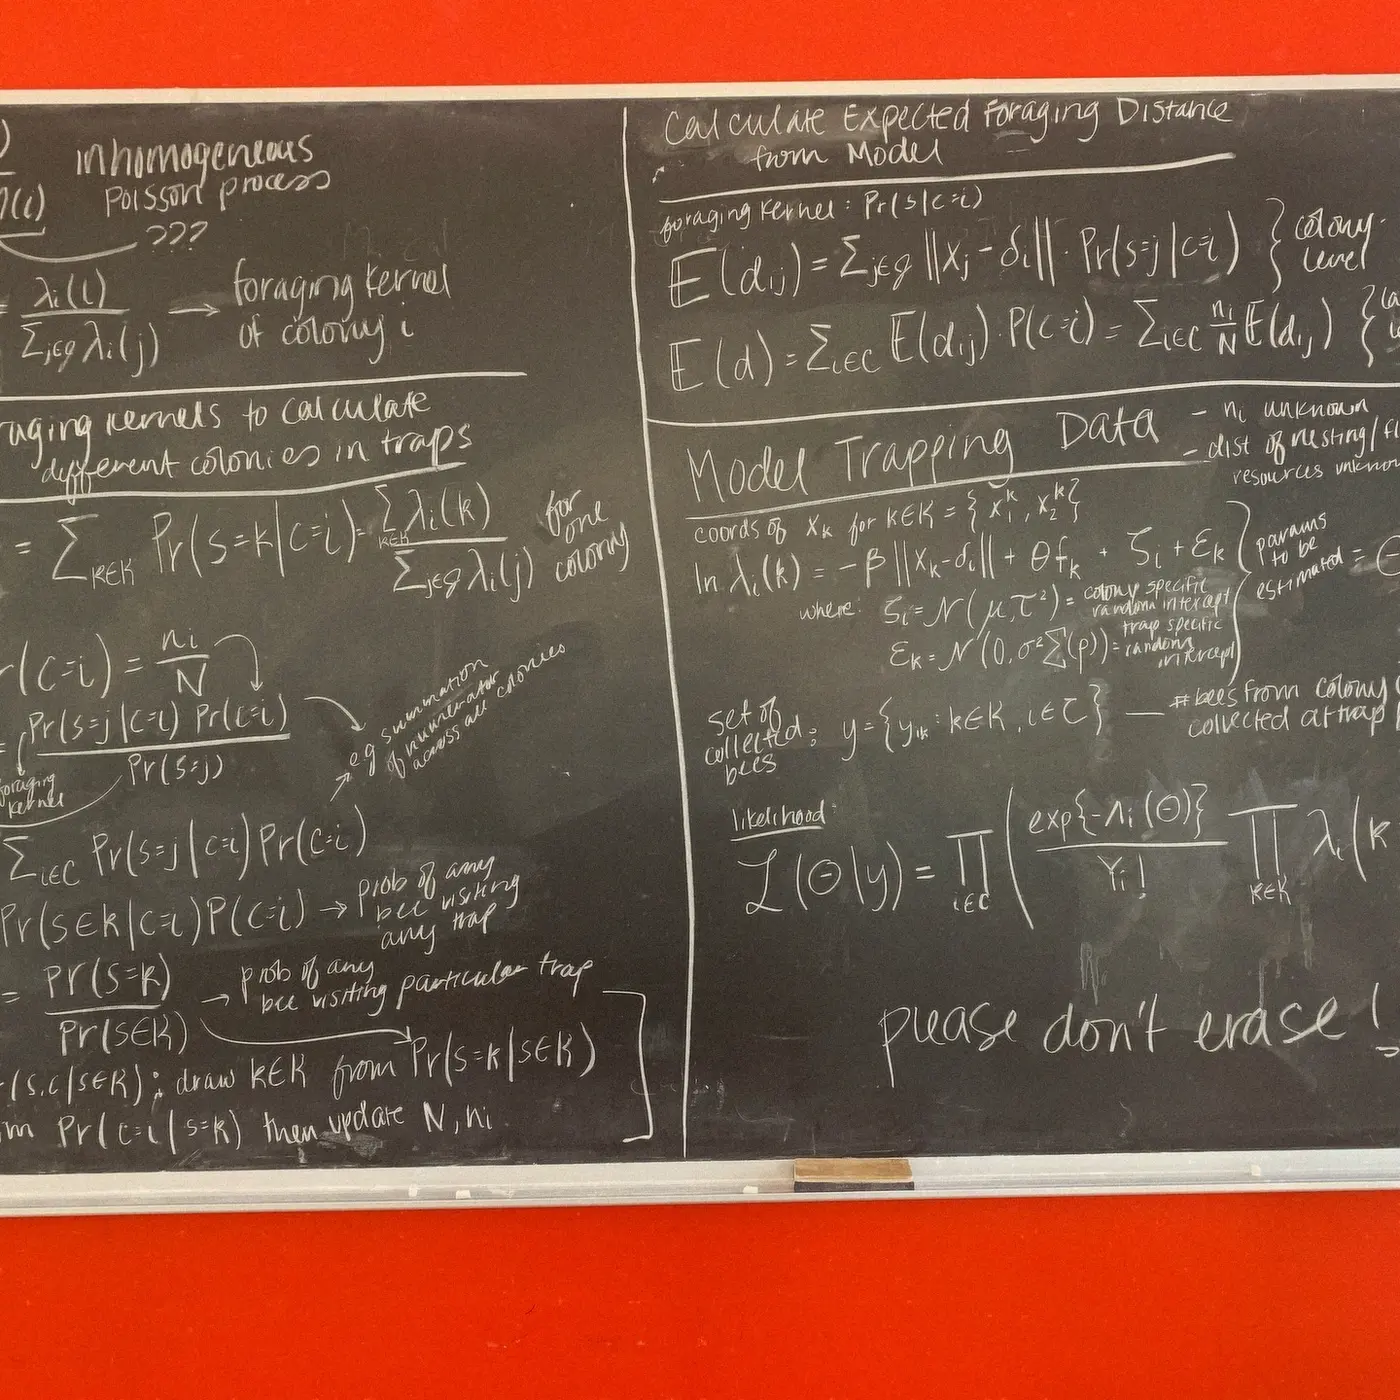 inhomogeneous
Poisson process
(i)
???
= λi(i) / Σj∈g λi(j) → foraging kernel
of colony i
raging kernels to calculate
different colonies in traps
= Σk∈K Pr(s=k|c=i) = Σk∈K λi(k) / Σj∈g λi(j) for one colony
r(c=i) = ni/N
= Pr(s=j|c=i) Pr(c=i) / Pr(s=j)
foraging
kernel
eg summation
of numerator
across all colonies
Σi∈C Pr(s=j|c=i) Pr(c=i)
Pr(s∈K|c=i) P(c=i) → prob of any
bee visiting
any trap
= Pr(s=k) / Pr(s∈K) → prob of any
bee visiting particular trap
r(s,c|s∈K): draw k∈K from Pr(s=k|s∈K)
m Pr(c=i|s=k) then update N, ni
Calculate Expected Foraging Distance
from Model
foraging kernel: Pr(s|c=i)
E(dij) = Σj∈g ||xj - δi|| · Pr(s=j|c=i) } colony-
level
E(d) = Σi∈C E(dij) · P(c=i) = Σi∈C ni/N E(dij) {
Model Trapping Data
- ni unknown
- dist of nesting/fl
resources unknow
coords of xk for k∈K = {x1^k, x2^k}
ln λi(k) = -β ||xk-δi|| + θfk + ζi + εk
where: ζi = N(μ, τ²) = colony specific
random intercept
εk = N(0, σ²Σ(ρ)) = trap specific
random
intercept
params
to be
estimated = Θ
set of
collected
bees : y = {yik : k∈K, i∈C} — # bees from colony
collected at trap
likelihood:
L(Θ|y) = ∏i∈C ( exp{-Λi(Θ)} / Yi! ∏k∈K λi(k
please don't erase!